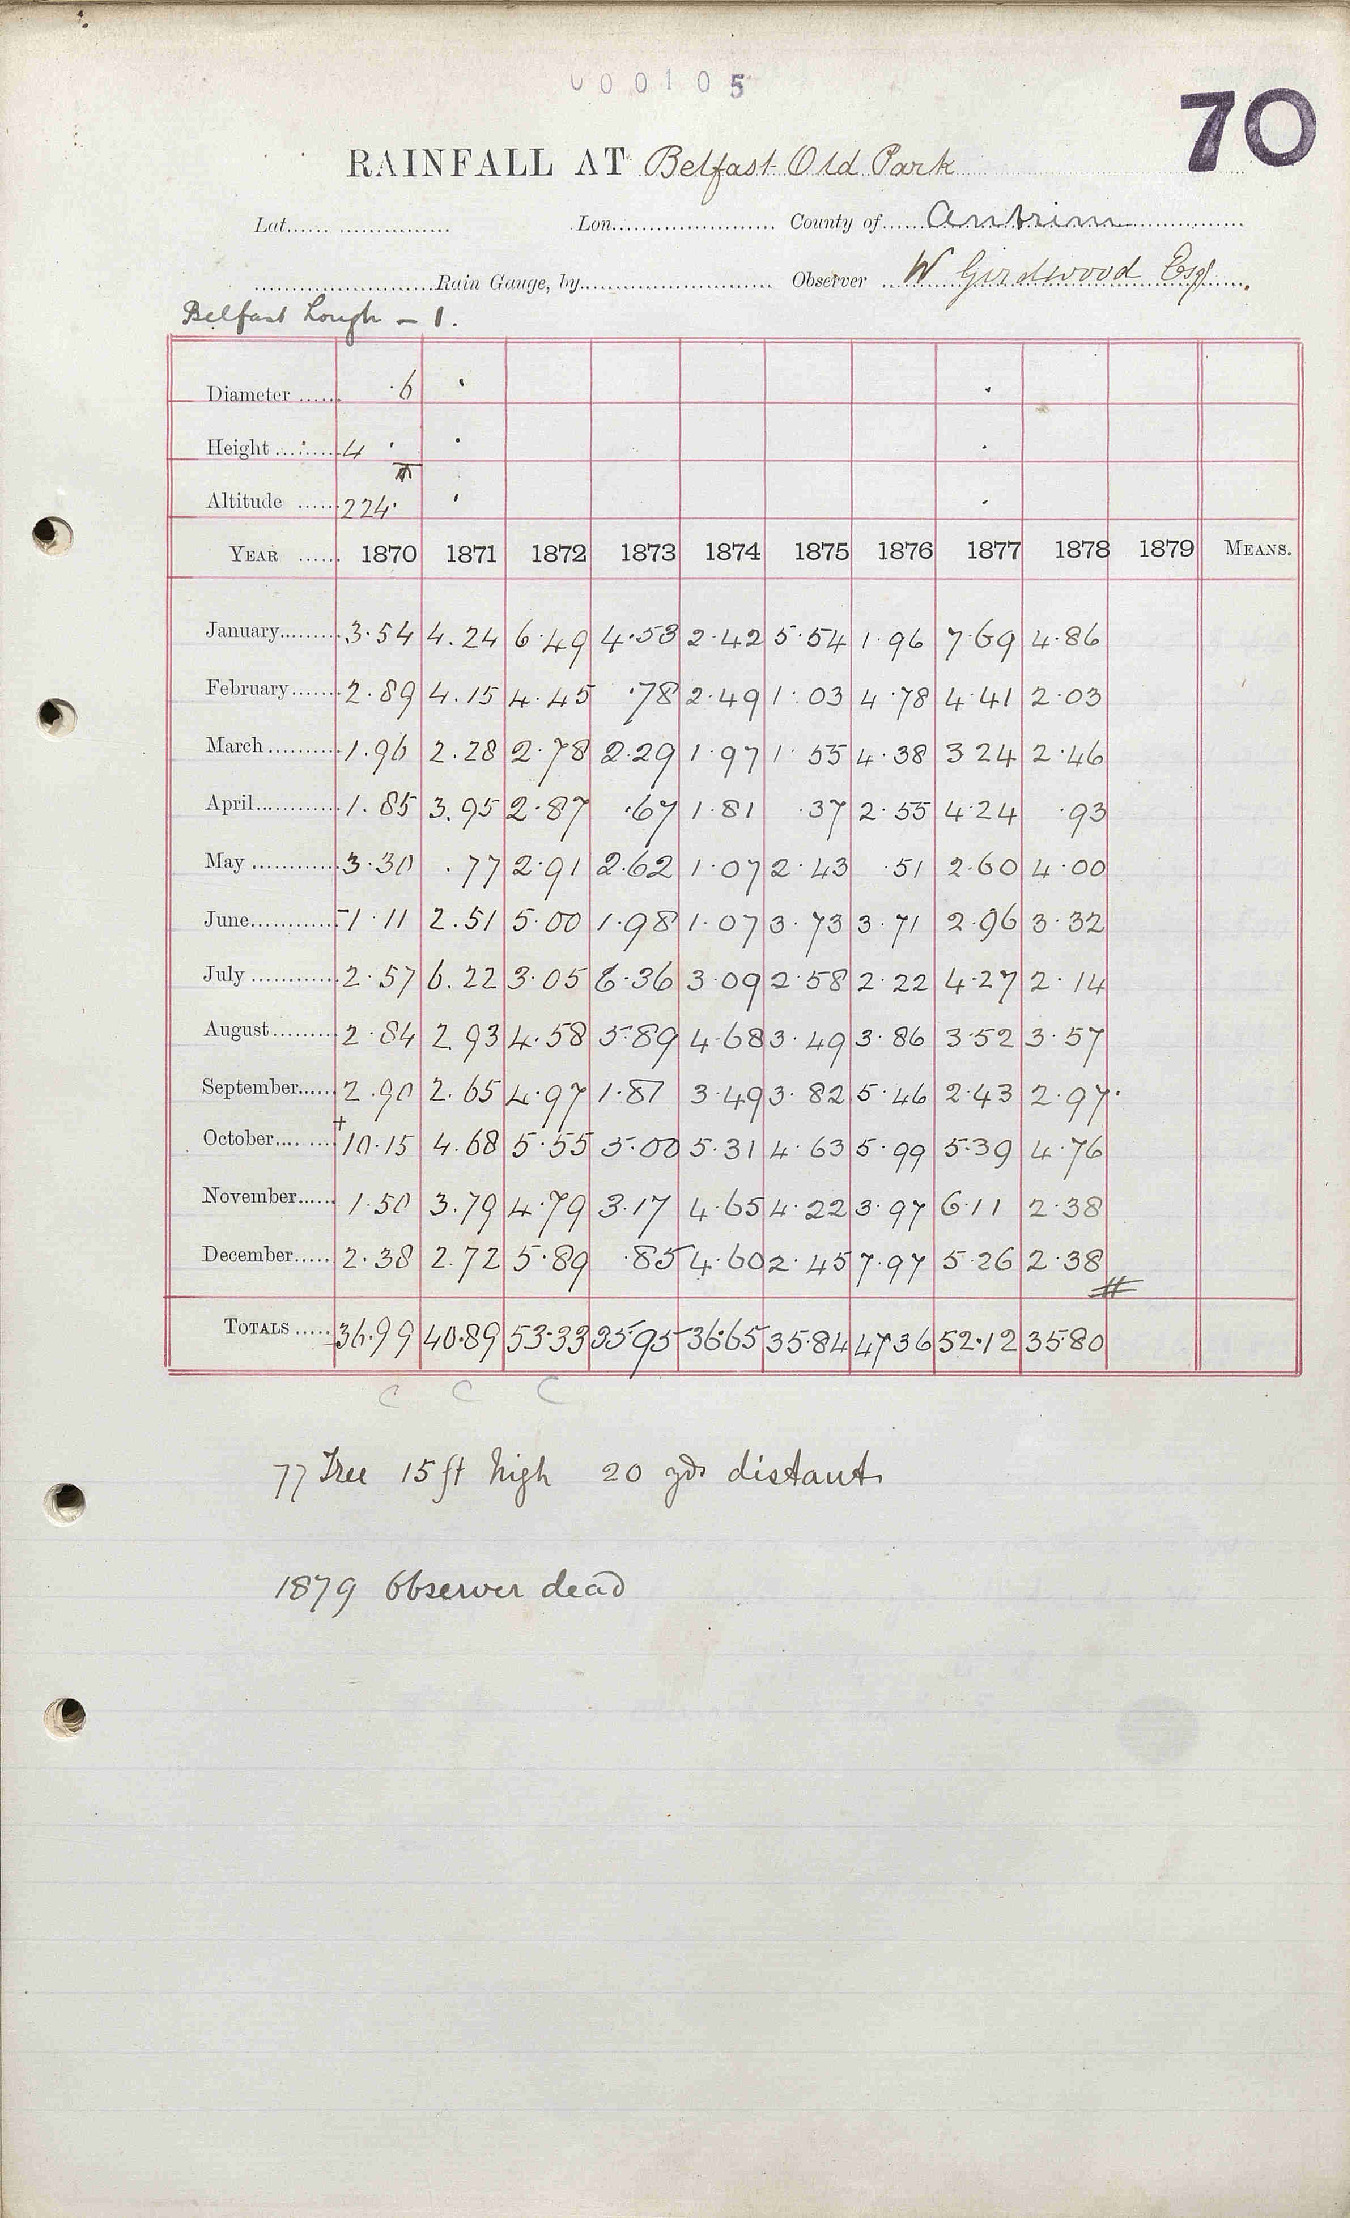 000105
70
RAINFALL AT Belfast Old Park
Lat. Lon. County of Antrim
Rain Gauge, by Observer W Girdwood Esqr
Belfast Lough – 1.
Diameter ...... ·6 · ·
Height ...... 4 · · ·
Altitude ...... 224· · ·
YEAR ...... 1870 1871 1872 1873 1874 1875 1876 1877 1878 1879 MEANS.
January 3·54 4.24 6·49 4·53 2·42 5·54 1·96 7·69 4·86
February 2·89 4.15 4·45 ·78 2·49 1·03 4·78 4·41 2·03
March 1.96 2.28 2·78 2·29 1·97 1·55 4·38 3 24 2·46
April 1.85 3.95 2·87 ·67 1·81 ·37 2·55 4·24 ·93
May 3·30 .77 2·91 2·62 1·07 2·43 ·51 2·60 4·00
June 1·11 2.51 5·00 1·98 1·07 3·73 3·71 2·96 3·32
July 2·57 6.22 3·05 6·36 3 09 2·58 2·22 4·27 2·14
August 2·84 2.93 4·58 5·89 4·68 3·49 3·86 3 52 3·57
September 2.90 2.65 4·97 1·81 3·49 3·82 5·46 2·43 2·97
October + 10·15 4.68 5·55 5·00 5·31 4·63 5·99 5·39 4·76
November 1·50 3.79 4·79 3·17 4·65 4·22 3·97 6·11 2·38
December 2·38 2.72 5·89 ·85 4·60 2·45 7·97 5·26 2·38
TOTALS 36·99 40·89 53·33 35·95 36·65 35·84 47·36 52·12 35·80
C C C
77 Tree 15 ft high 20 yds distant
1879 Observer dead